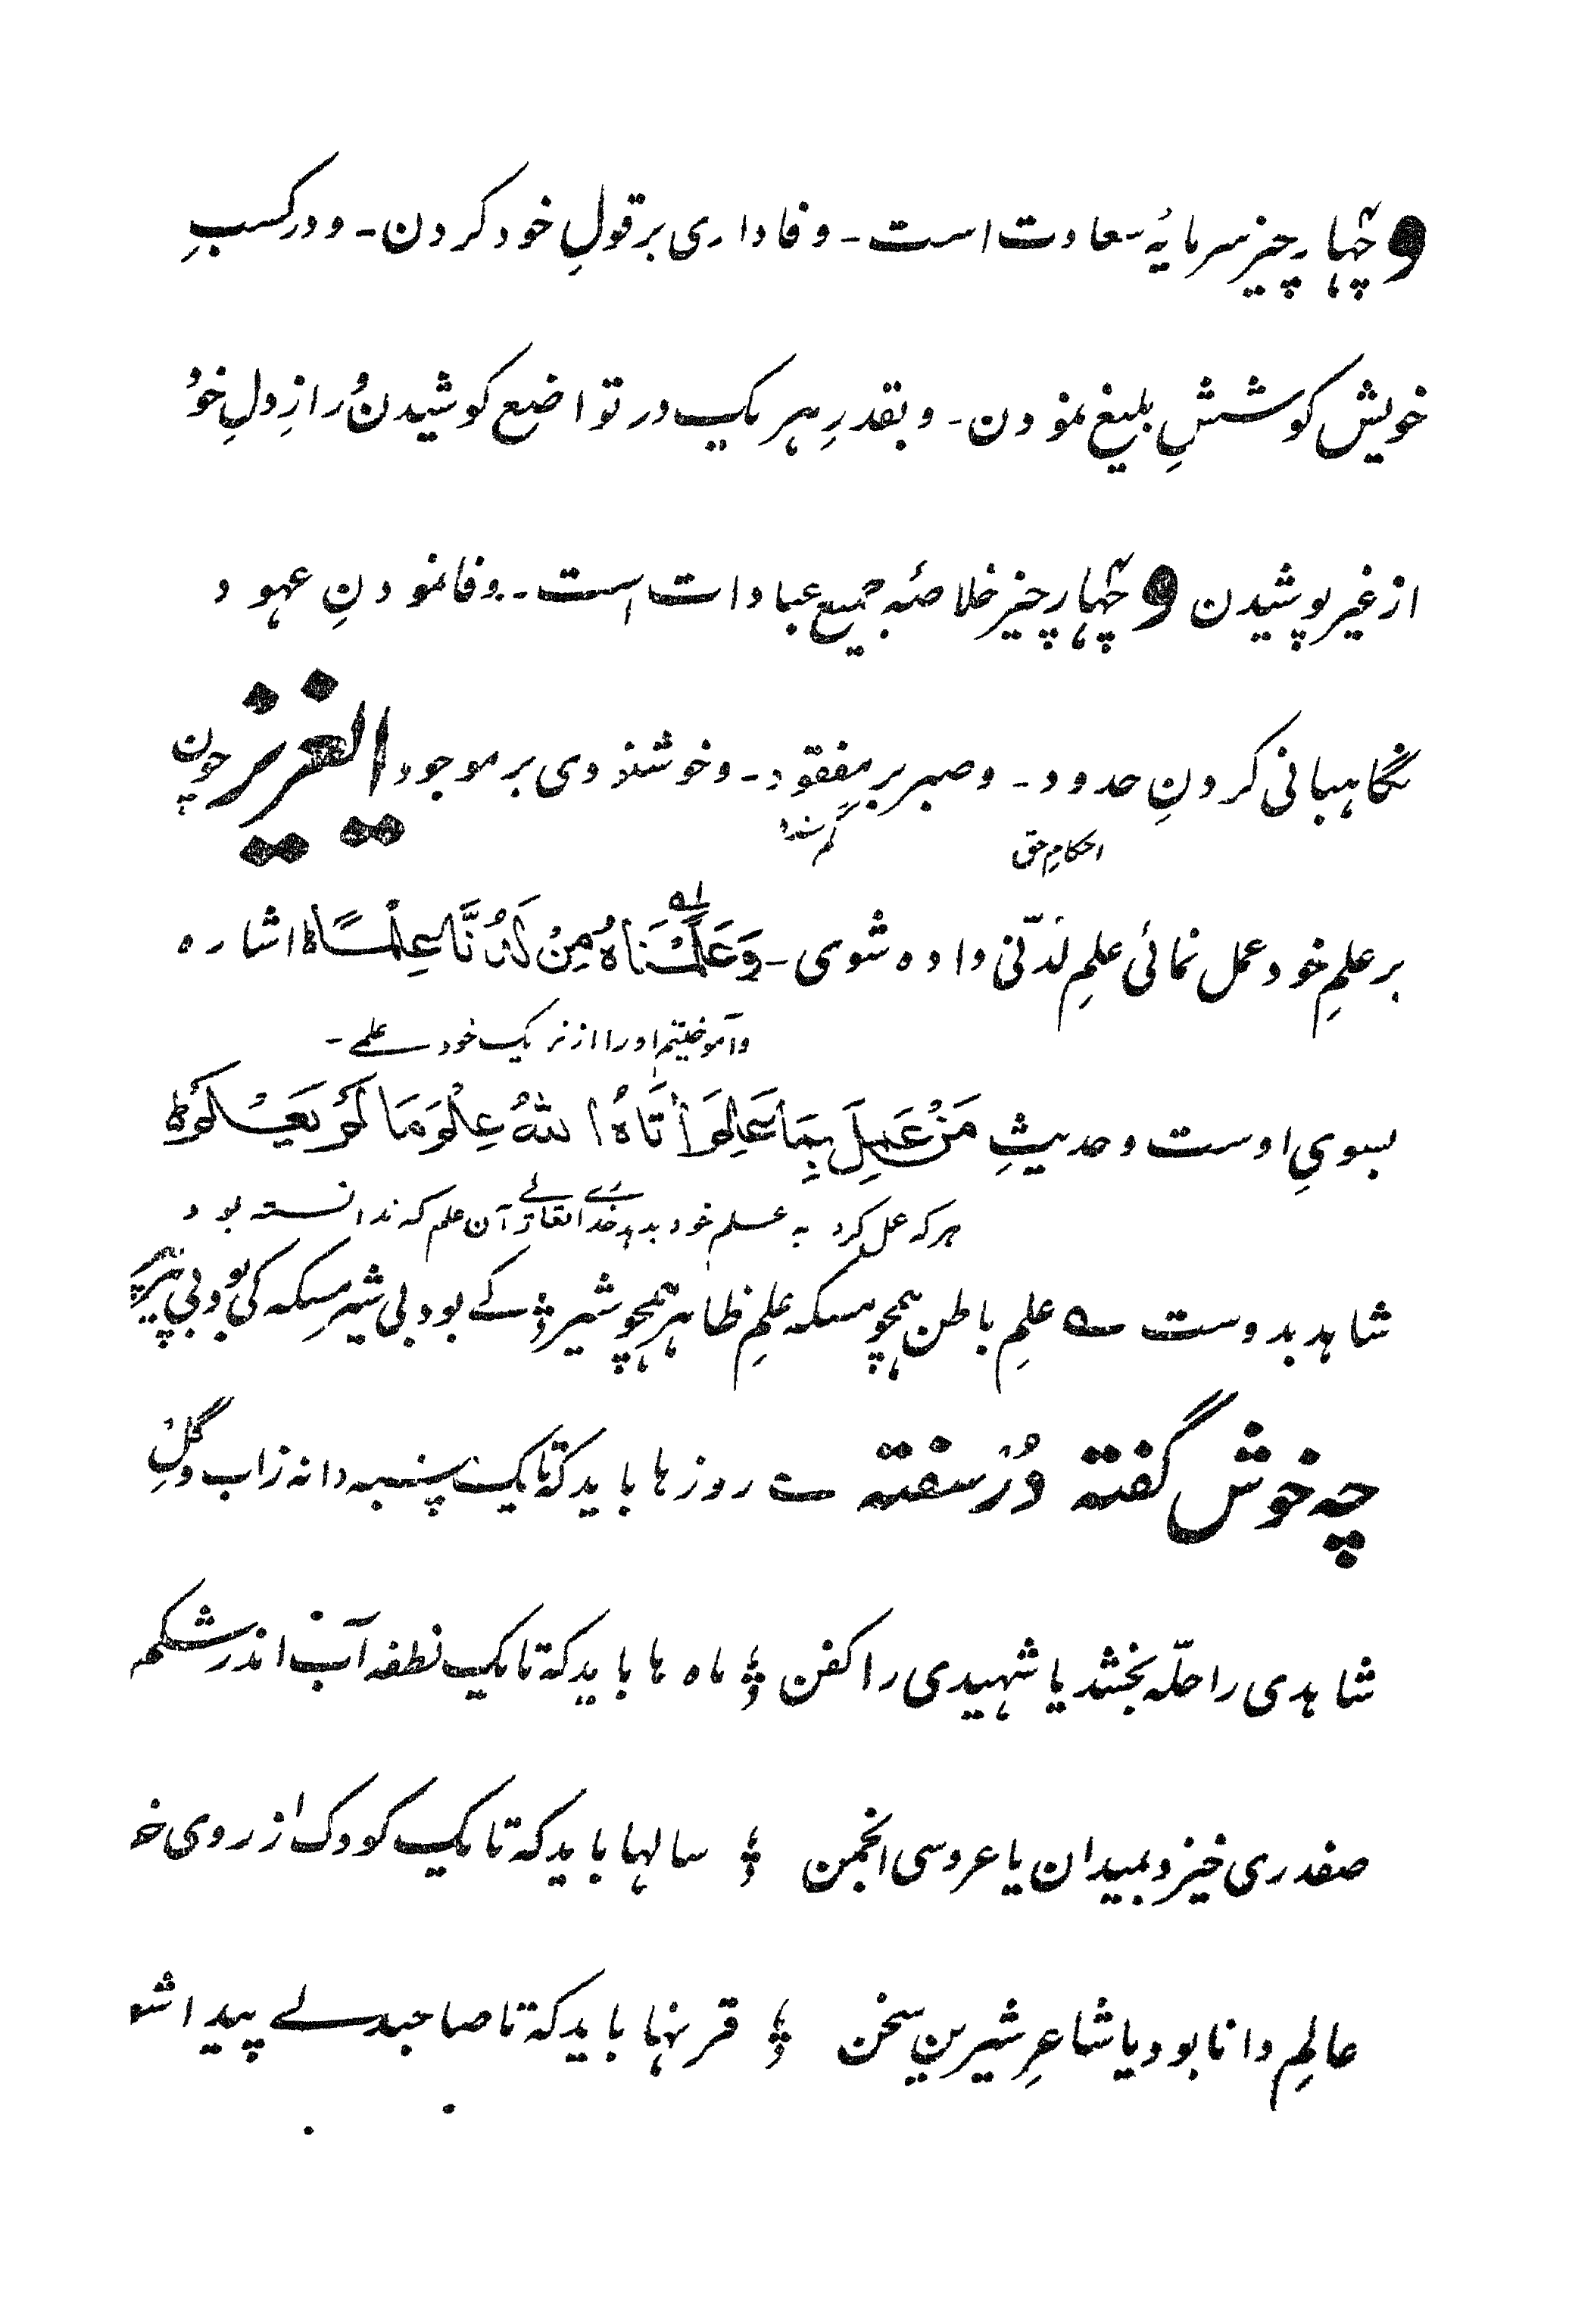 و چهار چیز سرمایۂ سعادت است ـ وفاداری بر قولِ خود کردن ـ و در کسبِ
خویش کوششِ بلیغ نمودن ـ و بقدرِ هر یک در تواضع کوشیدن و راز دلِ خود
از غیر پوشیدن و چهار چیز خلاصۂ جمیع عبادات است ـ وفا نمودنِ عهود
نگاهبانی کردنِ حدود ـ و صبر بر مفقود ـ و خوشنودی بر موجود ای عزیز چون
احکامِ حق گم شده
بر علمِ خود عمل نمائی علمِ لدنّی داده شوی ـ وَعَلَّمْنَاهُ مِنْ لَدُنَّا عِلْمًا اشاره
وآموختیم او را از نزدیک خود علمے ـ
بسویِ اوست و حدیثِ مَنْ عَمِلَ بِمَا عَلِمَ اَتَاهُ اللهُ عِلْمَ مَا لَمْ يَعْلَمْ
هر که عمل کرد به علم خود بدهد خدائے تعالےٰ آن علم که ندانسته بود
شاهد بدوست ے علمِ باطن همچو مسکه علمِ ظاهر همچو شیر ؛ کے بود بی شیر مسکه کی بود بی پیر پیر
چه خوش گفته دُر سفته ے روزها باید که تا یک پنبه دانه ز آب و گل
شاهدی را حلّه بخشد یا شهیدی را کفن ؛ ماه ها باید که تا یک نطفه آب اندر شکم
صفدری خیزد بمیدان یا عروسی انجمن ؛ سالها باید که تا یک کودک از روی خ
عالمِ دانا بود یا شاعرِ شیرین سخن ؛ قرنها باید که تا صاحبدلے پیدا شو